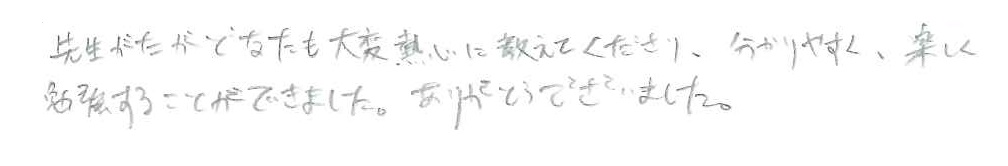 先生がたがどなたも大変熱心に教えてくださり、分かりやすく、楽しく
勉強することができました。ありがとうございました。